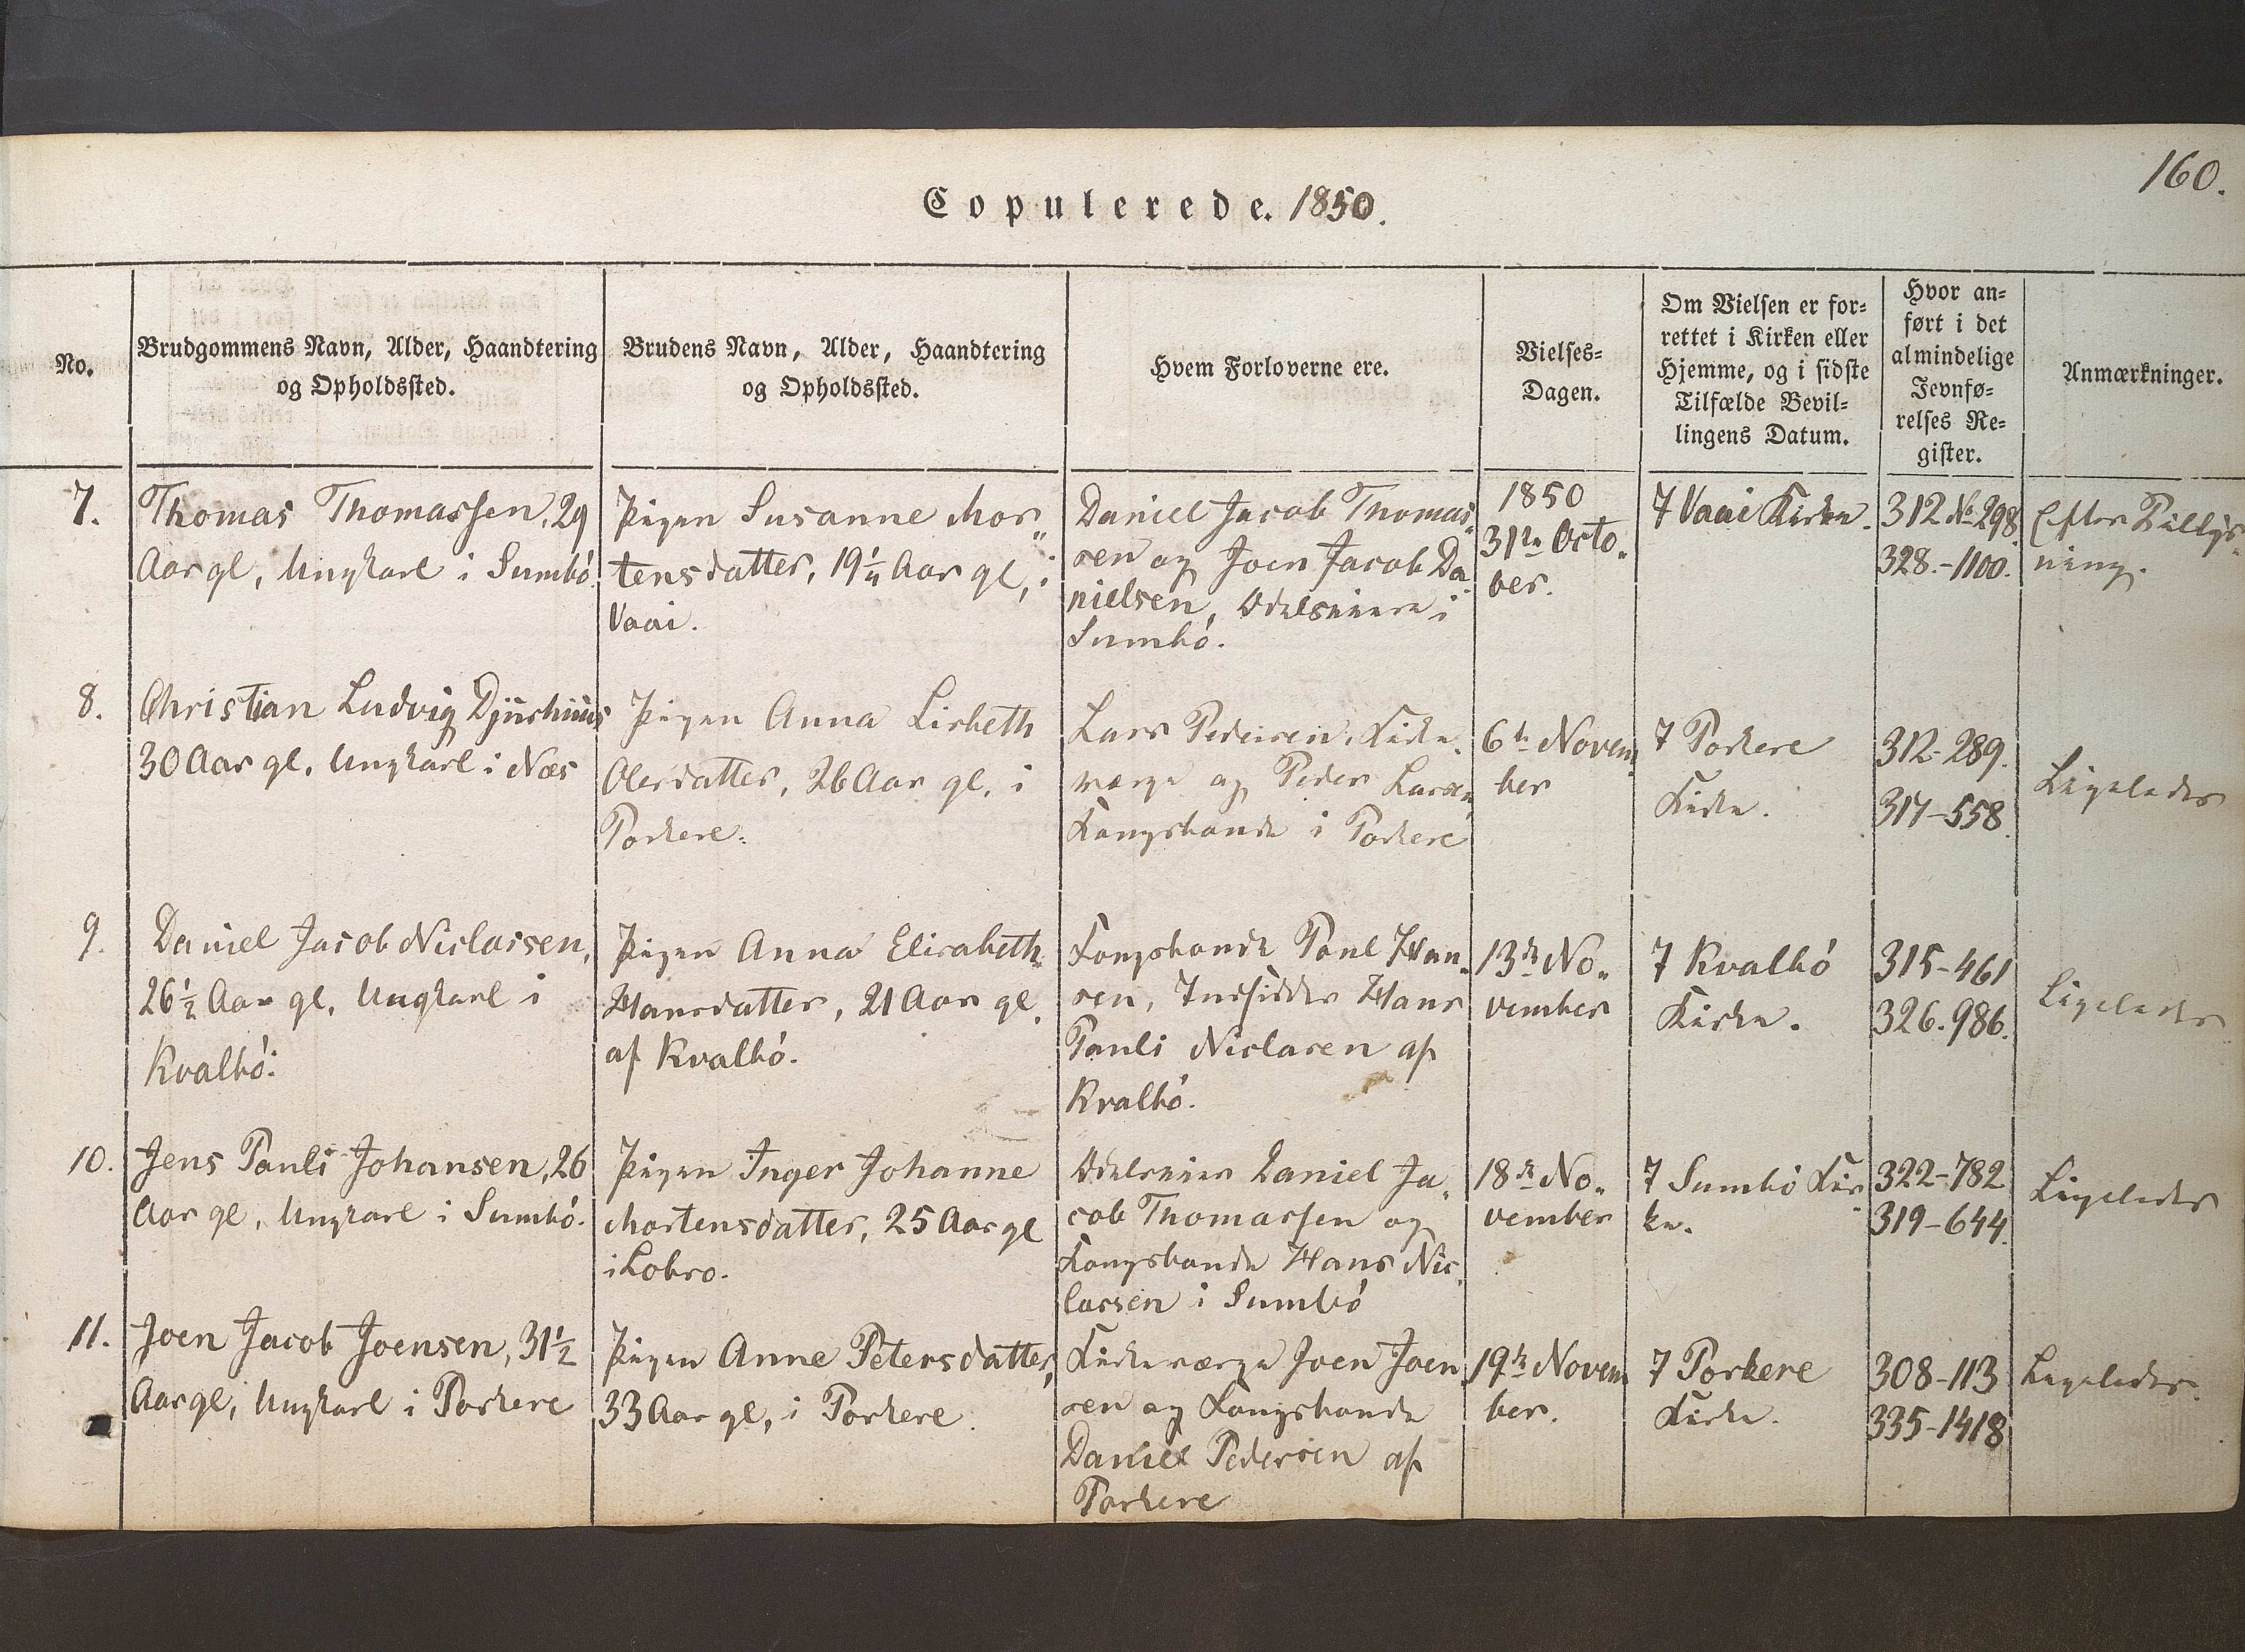 160.
Copulerede. 1850.
No.
Brudgommens Navn, Alder, Haandtering
og Opholdssted.
Brudens Navn, Alder, Haandtering
og Opholdssted.
Hvem Forloverne ere.
Vielses-
Dagen.
Om Vielsen er for-
rettet i Kirken eller
Hjemme, og i sidste
Tilfælde Bevil-
lingens Datum.
Hvor an-
ført i det
almindelige
Jevnfø-
relses Re-
gister.
Anmærkninger.
7.
Thomas Thomassen, 29
Aar gl, Ungkarl i Sumbó.
Pigen Susanne Mor„
tensdatter, 19¼ Aar gl, i
Vaai.
Daniel Jacob Thomas„
sen og Joen Jacob Da
nielsen, Odelseiere i
Sumbó.
1850
31te Octo„
ber.
I Vaai Kirke.
312 No 298.
328.-1100.
Efter Tillys„
ning.
8.
Christian Ludvig Djurhuus
30 Aar gl. Ungkarl i Næs
Pigen Anna Lisbeth
Olesdatter, 26 Aar gl. i
Porkere.
Lars Pedersen, Kirke„
værge og Peder Larsen
Kongsbonde i Porkere
6te Novem„
ber
I Porkere
Kirke.
312-289.
317-558.
Ligeledes
9.
Daniel Jacob Niclassen,
26½ Aar gl. Ungkarl i
Kvalbó.
Pigen Anna Elisabeth
Hansdatter, 21 Aar gl.
af Kvalbó.
Kongsbonde Poul Han„
sen, Indsidder Hans
Pauli Niclasen af
Kvalbó.
13de No„
vember
I Kvalbó
Kirke.
315-461
326.986.
Ligeledes
10.
Jens Pauli Johansen, 26
Aar gl, Ungkarl i Sumbó.
Pigen Inger Johanne
Mortensdatter, 25 Aar gl
i Lobro.
Odelseier Daniel Ja„
cob Thomassen og
Kongsbonde Hans Nic„
lassen i Sumbó
18de No„
vember
I Sumbó Kir„
ke.
322-782
319-644.
Ligeledes
11.
Joen Jacob Joensen, 31½
Aar gl, Ungkarl i Porkere
Pigen Anne Petersdatter,
33 Aar gl, i Porkere.
Kirkeværge Joen Joen„
sen og Kongsbonde
Daniel Pedersen af
Porkere
19de Novem„
ber.
I Porkere
Kirke.
308-113
335-1418
Ligeledes.